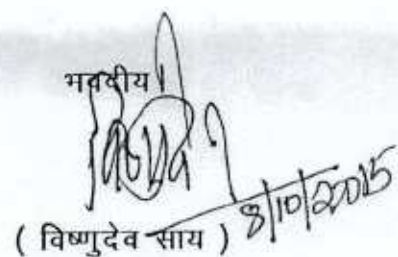 भवदीय
8/10/2015
( विष्णुदेव साय )